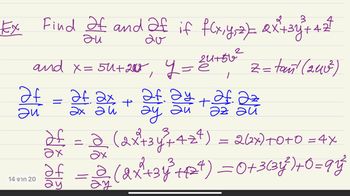 Ex Find ∂f/∂u and ∂f/∂v if f(x,y,z)=2x²+3y³+4z⁴
and x=5u+2v, y=e^(2u+5v²), z=tan⁻¹(2uv²)
∂f/∂u = ∂f/∂x ∂x/∂u + ∂f/∂y · ∂y/∂u + ∂f/∂z · ∂z/∂u
∂f/∂x = ∂/∂x (2x²+3y³+4z⁴) = 2(2x)+0+0=4x
∂f/∂y = ∂/∂y (2x²+3y³+4z⁴) = 0+3(3y²)+0=9y²
20